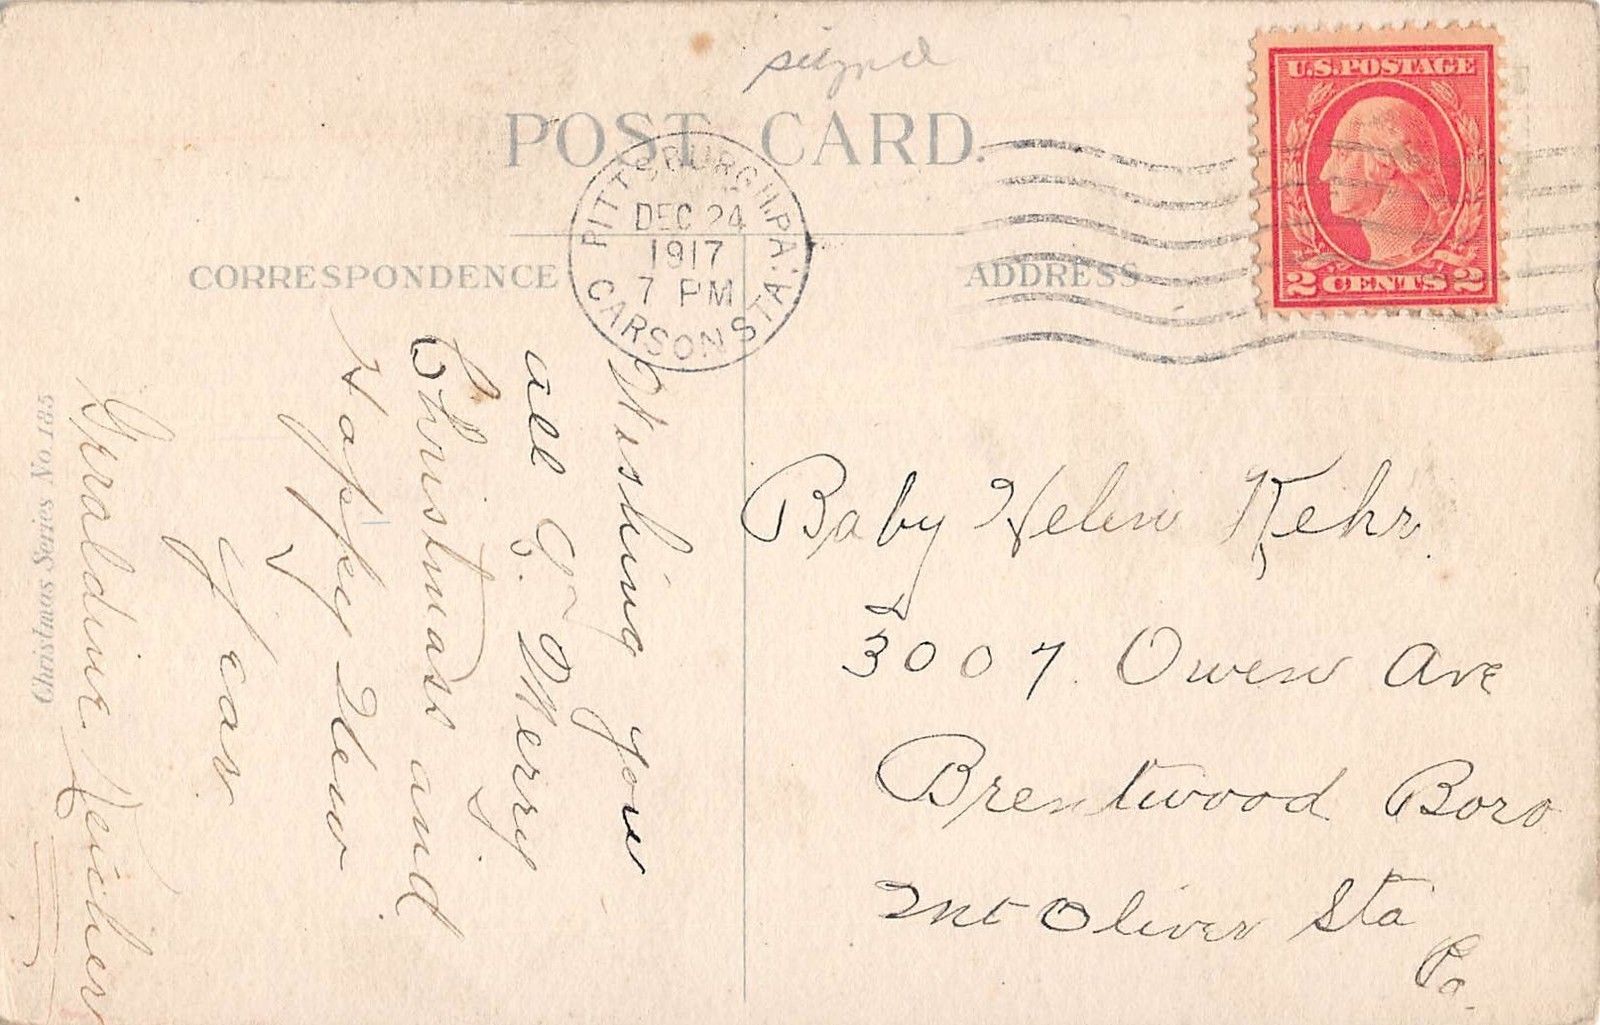 signed
POST CARD.
U.S. POSTAGE
2 CENTS 2
PITTSBURGH, PA.
DEC 24
1917
7 PM
CARSON STA.
CORRESPONDENCE
ADDRESS
Wishing you
all a Merry
Christmas and
Happy New
Year
Geraldine
Baby Helen Kehr
3007 Owen Ave
Brentwood Boro
Mt Oliver Sta
Pa.
Christmas Series No. 185